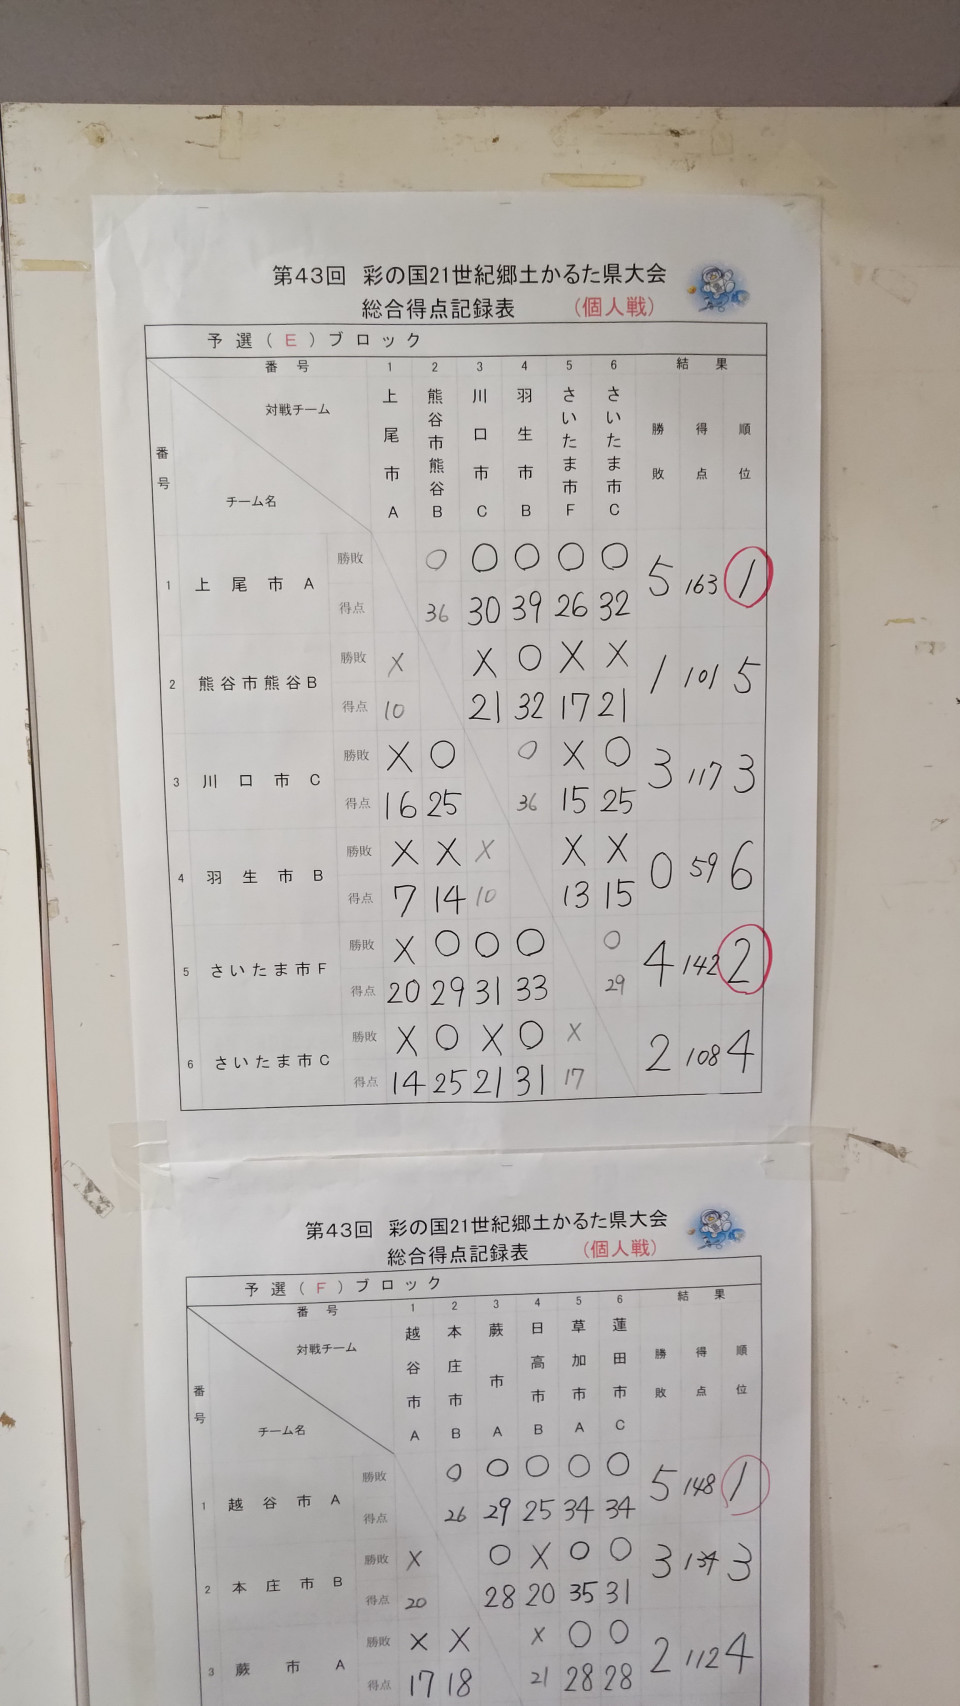 第43回 彩の国21世紀郷土かるた県大会
総合得点記録表 (個人戦)
予選(E)ブロック
番号 1 2 3 4 5 6 結果
対戦チーム 上尾市A 熊谷市熊谷B 川口市C 羽生市B さいたま市F さいたま市C 勝敗 得点 順位
番号
チーム名
1 上尾市A 勝敗 ○ ○ ○ ○ ○ 5 163 1
得点 36 30 39 26 32
2 熊谷市熊谷B 勝敗 × × ○ × × 1 101 5
得点 10 21 32 17 21
3 川口市C 勝敗 × ○ ○ × ○ 3 117 3
得点 16 25 36 15 25
4 羽生市B 勝敗 × × × × × 0 59 6
得点 7 14 10 13 15
5 さいたま市F 勝敗 × ○ ○ ○ ○ 4 142 2
得点 20 29 31 33 29
6 さいたま市C 勝敗 × ○ × ○ × 2 108 4
得点 14 25 21 31 17
第43回 彩の国21世紀郷土かるた県大会
総合得点記録表 (個人戦)
予選(F)ブロック
番号 1 2 3 4 5 6 結果
対戦チーム 越谷市A 本庄市B 蕨市A 日高市B 草加市A 蓮田市C 勝敗 得点 順位
番号
チーム名
1 越谷市A 勝敗 ○ ○ ○ ○ ○ 5 148 1
得点 26 29 25 34 34
2 本庄市B 勝敗 × ○ × ○ ○ 3 134 3
得点 20 28 20 35 31
3 蕨市A 勝敗 × × × ○ ○ 2 112 4
得点 17 18 21 28 28